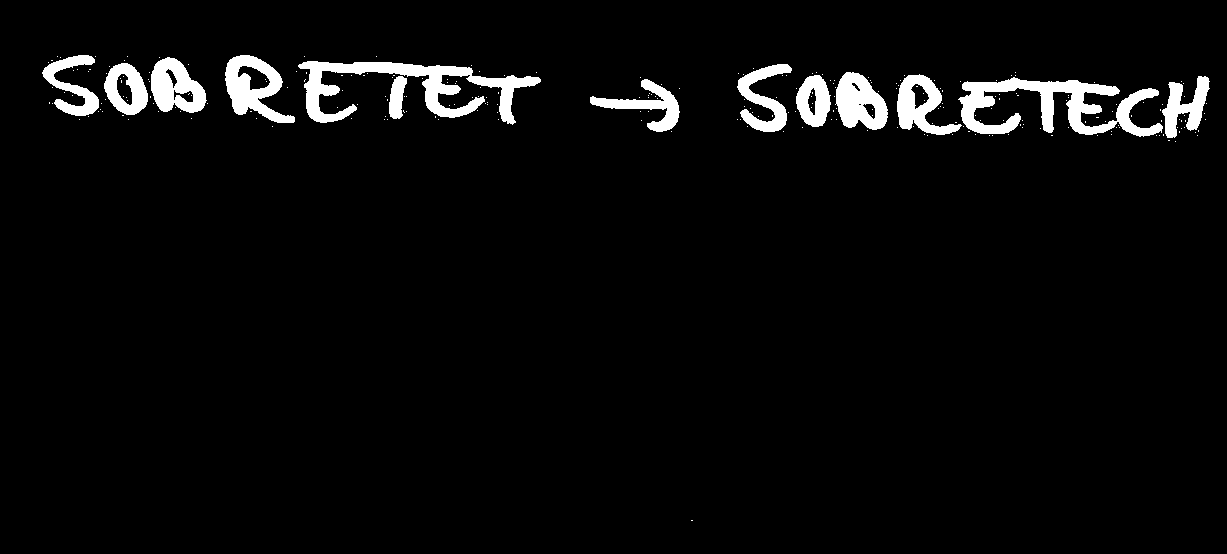 SOBRETET → SOBRETECH